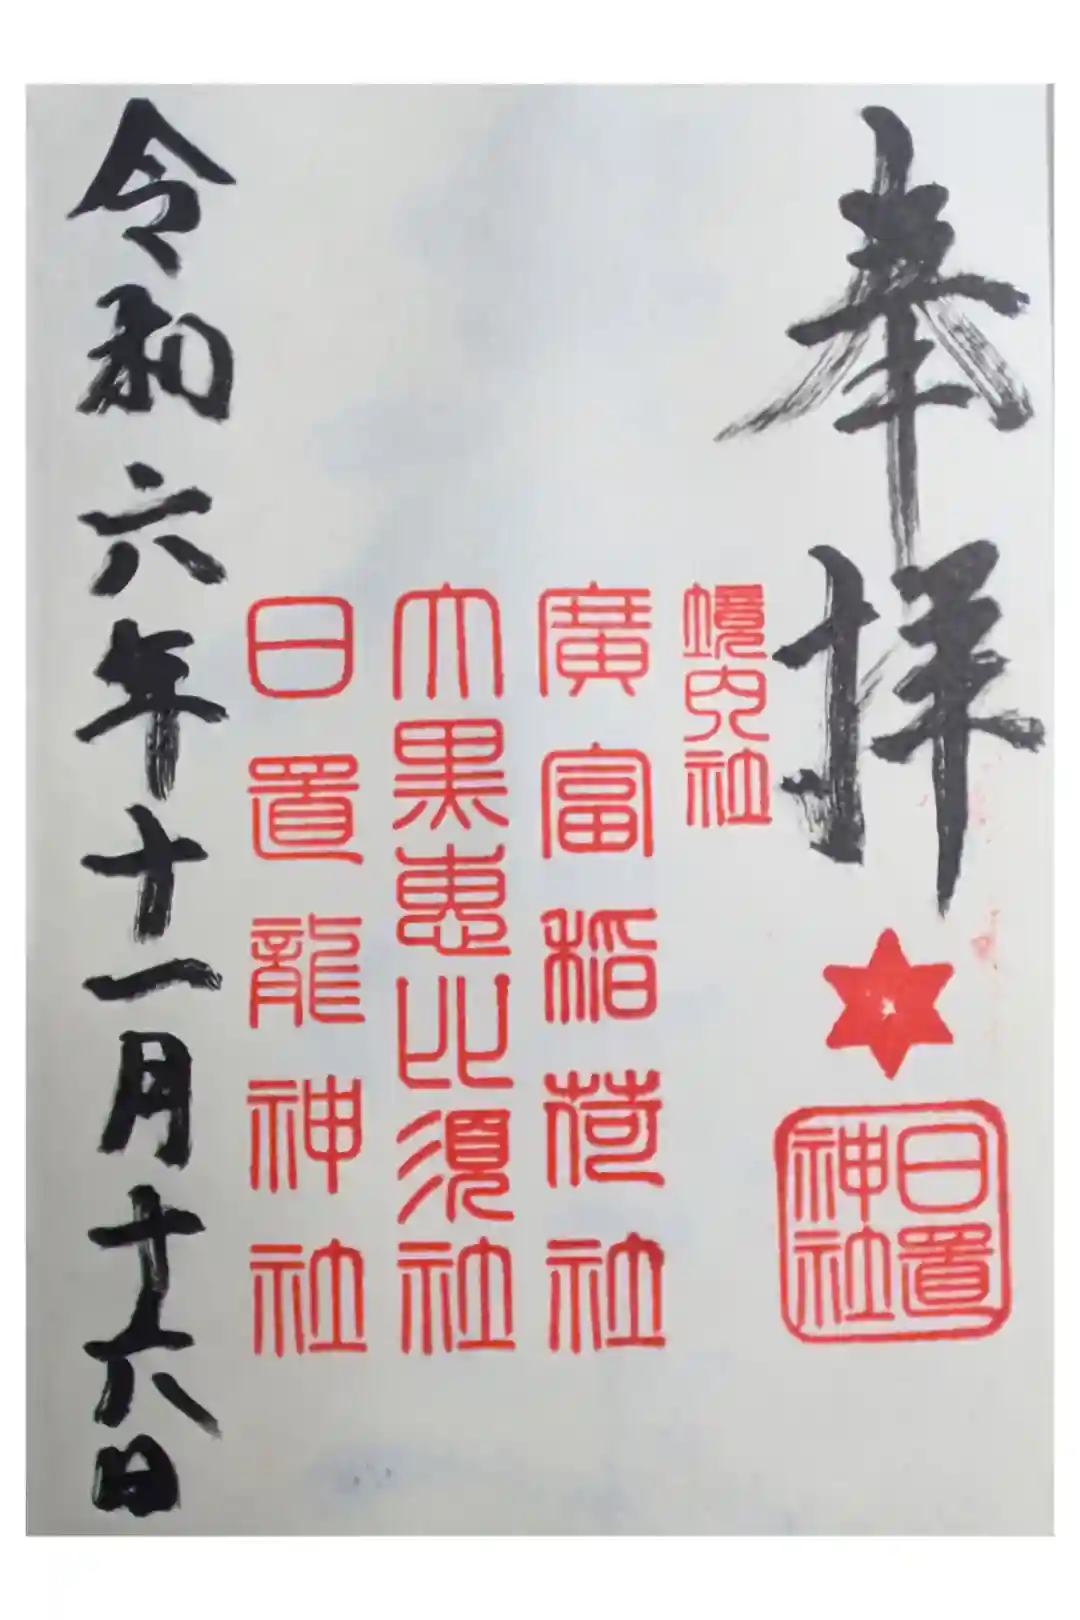 奉拝
日置神社
境内社
廣富稲荷社
大黒惠比須社
日置龍神社
令和六年十一月十六日